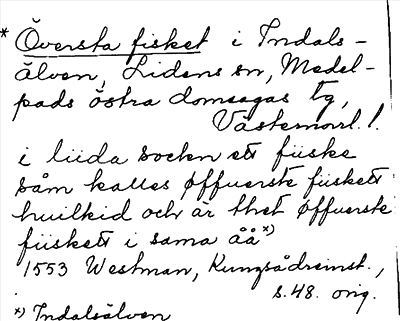 * Översta fisket i Indals-
älven, Lidens sn, Medel-
pads östra domsagas tg,
Västernorrl. l.
i liida socken ett fiiske
såm kalles øffuerste fiiskett
huilkid och är thet øffuerste
fiiskett i sama åå *)
1553 Westman, Kungsådreinst.,
s. 48. orig.
*) Indalsälven